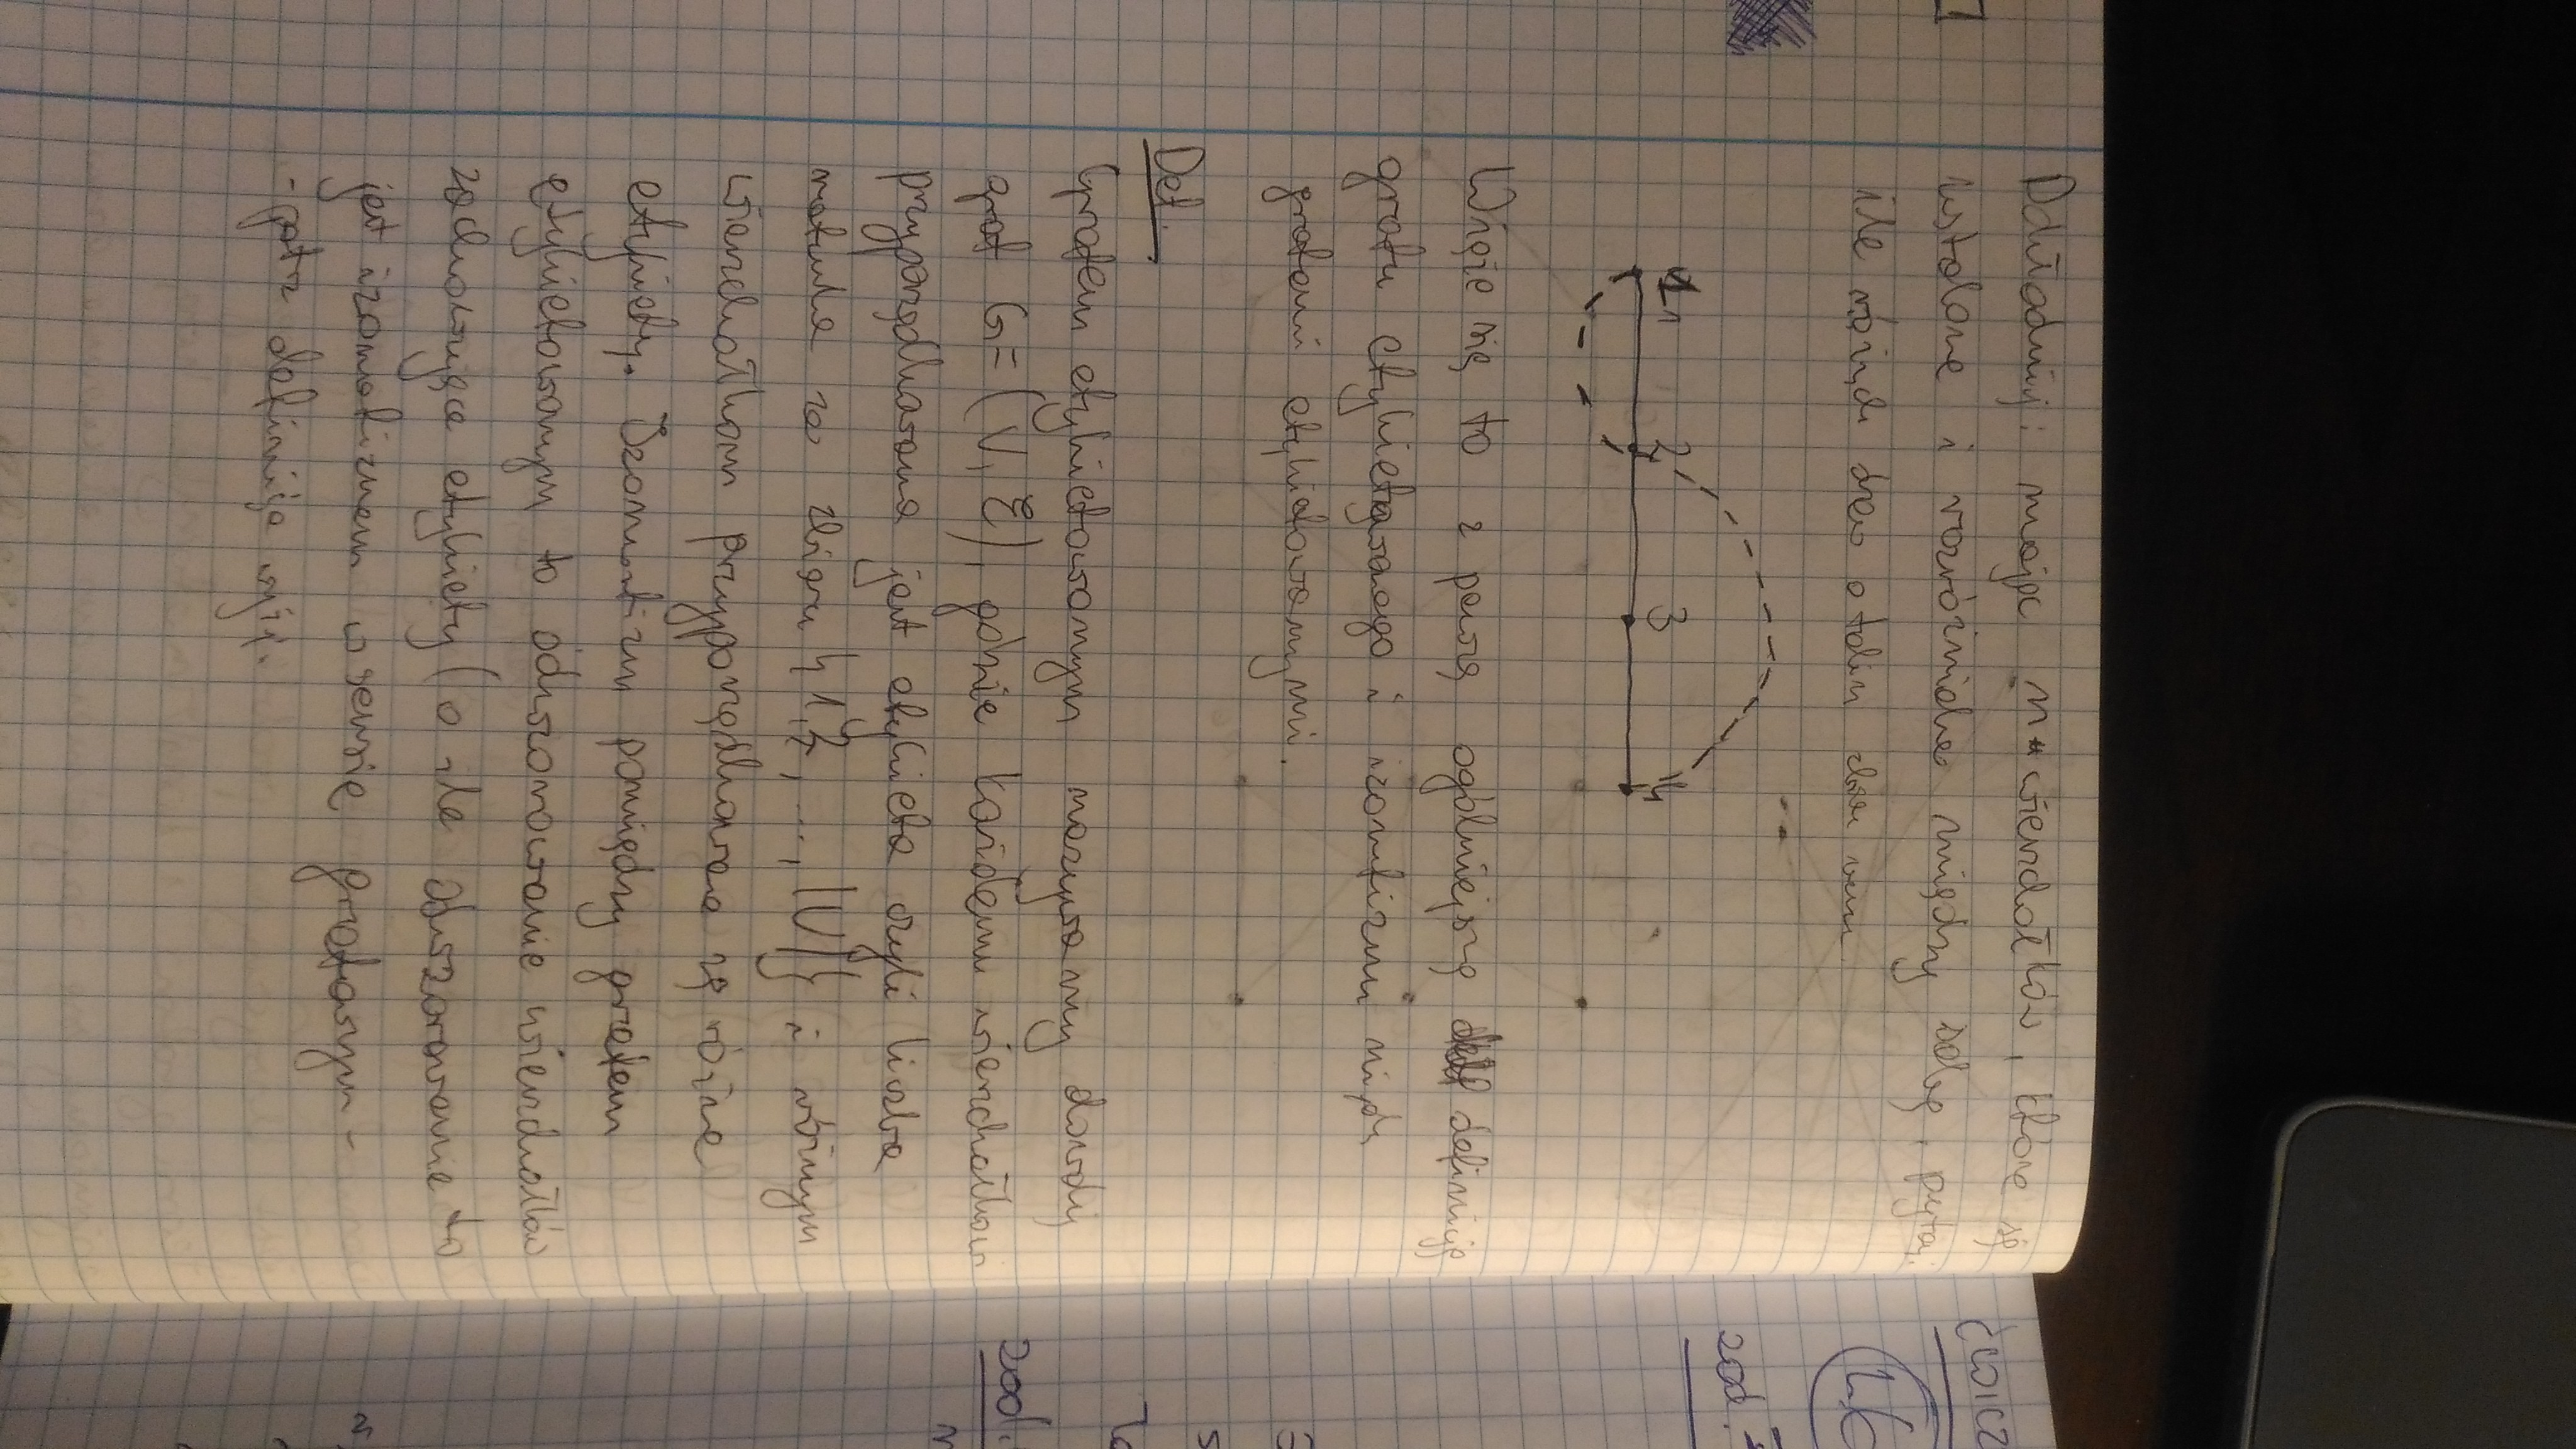 Dokładniej: mając n wierzchołków, które są
ustalone i rozróżnialne między sobą, pytaj.
ile różnych drzew o takim zbiorze
1 2 3 4
Wiąże się to z pewną ogólniejszą definicją
grafu etykietowanego i izomorfizmu między
grafami etykietowanymi.
Def.
Grafem etykietowanym nazywamy dowolny
graf G=(V, E), gdzie każdemu wierzchołkowi
przyporządkowana jest etykieta czyli liczba
naturalna ze zbioru {1,2, ..., |V|} i różnym
wierzchołkom przyporządkowane są różne
etykiety. Izomorfizm pomiędzy grafem
etykietowanym to odwzorowanie wierzchołków
zachowujące etykiety (o ile odwzorowanie to
jest izomorfizmem w sensie grafowym-
-patrz definicja wyż.
ćwicz
1.6
zad.
zad.